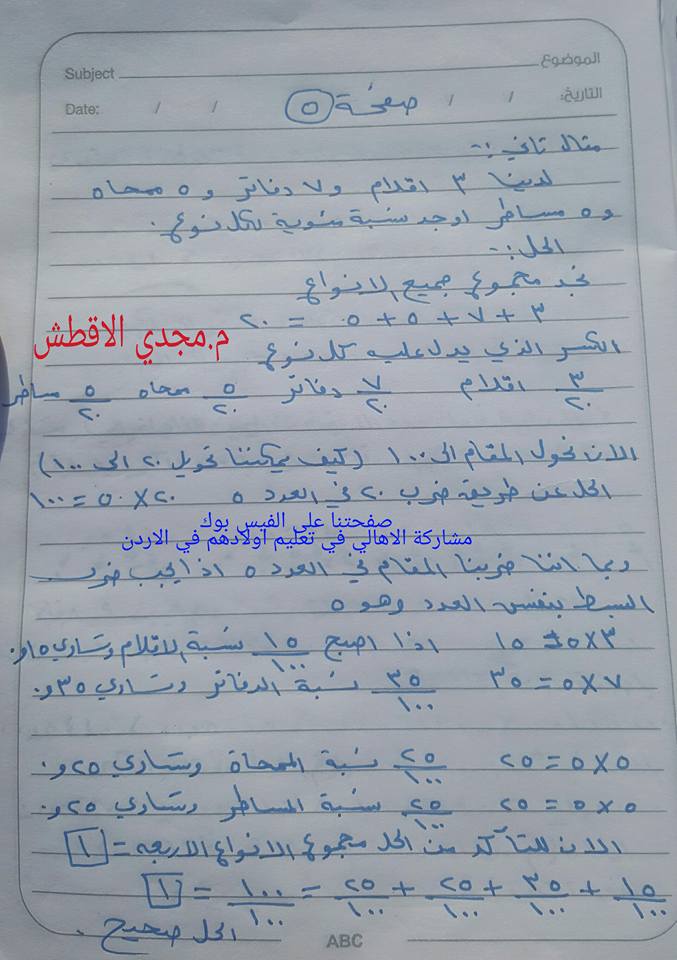 الموضوع
Subject
التاريخ: / /
Date: / /
صفحة ٥
مثال ثاني :-
لدينا ٣ اقلام و ٧ دفاتر و ٥ ممحاه
و ٥ مساطر اوجد نسبة مئوية لكل نوع .
الحل :-
نجد مجموع جميع الانواع
٣ + ٧ + ٥ + ٥ = ٢٠
م.مجدي الاقطش
الكسر الذي يدل عليه كل نوع
٣/٢٠ اقلام ٧/٢٠ دفاتر ٥/٢٠ ممحاه ٥/٢٠ مساطر
الان نحول المقام الى ١٠٠ (كيف يمكننا تحويل ٢٠ الى ١٠٠)
الحل عن طريقة ضرب ٢٠ في العدد ٥ ٢٠ × ٥ = ١٠٠
صفحتنا على الفيس بوك
مشاركة الاهالي في تعليم اولادهم في الاردن
وبما اننا ضربنا المقام في العدد ٥ اذا يجب ضرب
البسط بنفس العدد وهو ٥
٣ × ٥ = ١٥ اذا اصبح ١٥/١٠٠ نسبة الاقلام وتساوي ١٥و٠
٧ × ٥ = ٣٥ ٣٥/١٠٠ نسبة الدفاتر وتساوي ٣٥و٠
٥ × ٥ = ٢٥ ٢٥/١٠٠ نسبة الممحاة وتساوي ٢٥و٠
٥ × ٥ = ٢٥ ٢٥/١٠٠ نسبة المساطر وتساوي ٢٥و٠
الان للتأكد من الحل مجموع الانواع الاربعه = ١
١٥/١٠٠ + ٣٥/١٠٠ + ٢٥/١٠٠ + ٢٥/١٠٠ = ١٠٠/١٠٠ = ١
الحل صحيح .
ABC